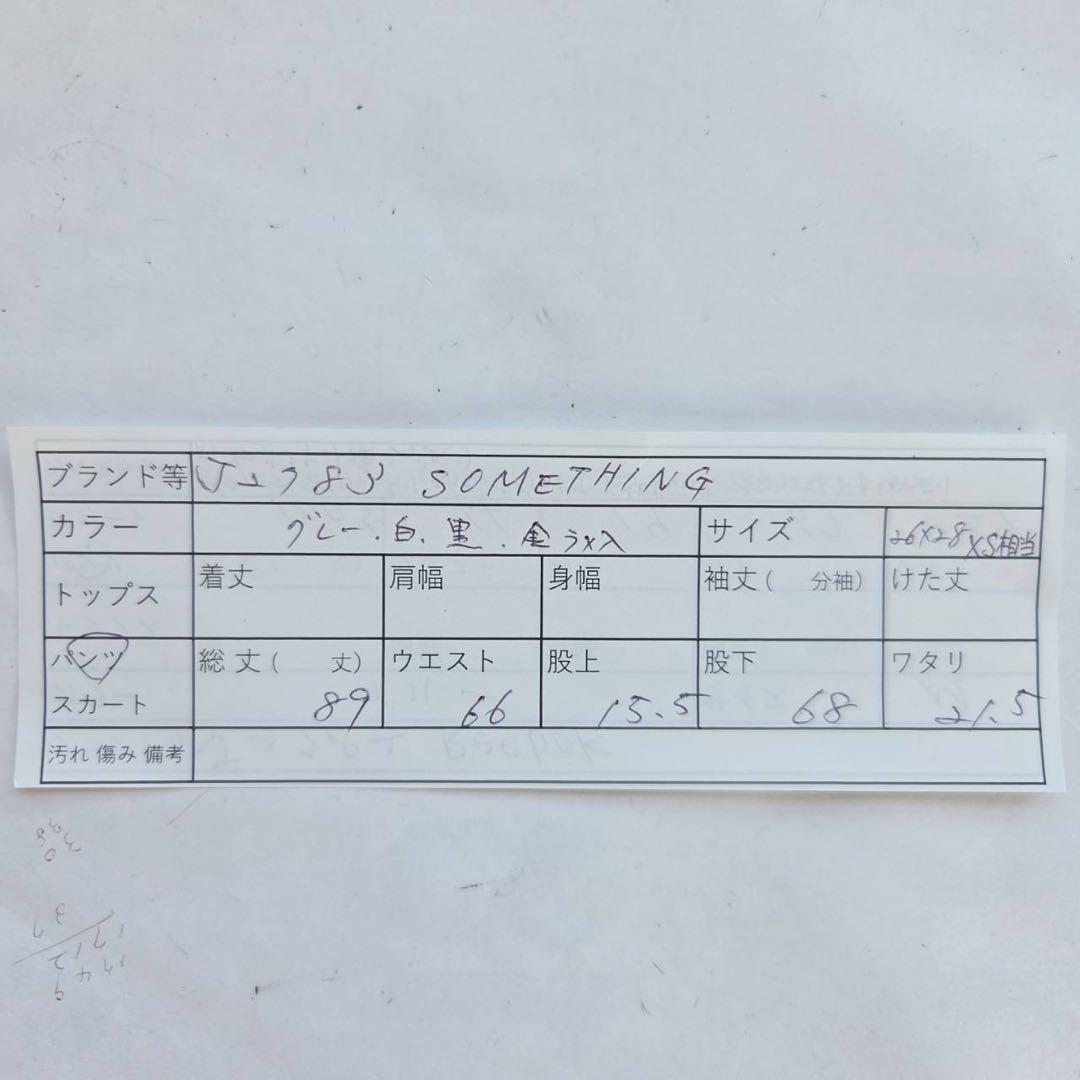 ブランド等 SOMETHING
カラー グレー.白.黒.金ラメ入 サイズ 26×28 XS相当
トップス 着丈 肩幅 身幅 袖丈( 分袖) けた丈
パンツ 総丈( 丈) ウエスト 股上 股下 ワタリ
スカート 89 66 15.5 68 21.5
汚れ 傷み 備考